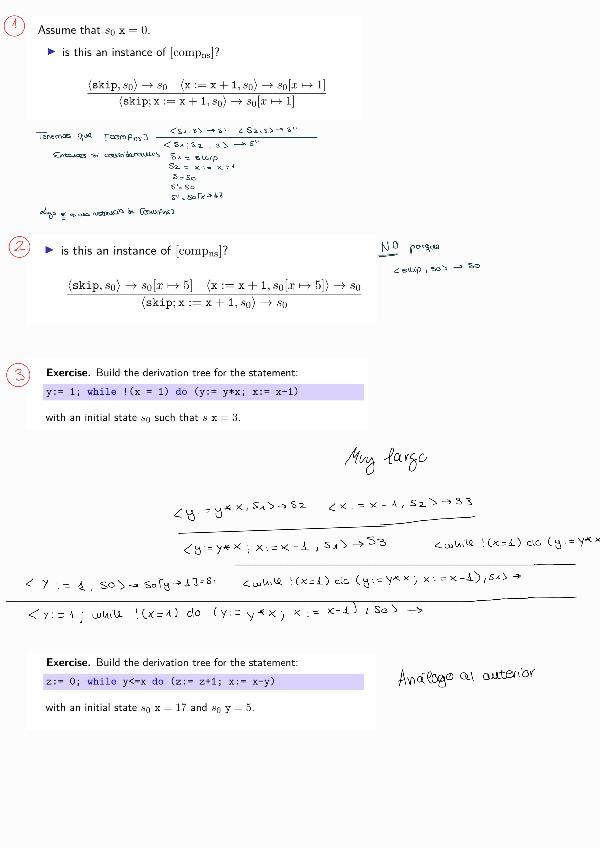 1
Assume that s₀ x = 0.
▶ is this an instance of [comp_ns]?
⟨skip, s₀⟩ → s₀ ⟨x := x + 1, s₀⟩ → s₀[x ↦ 1]
⟨skip; x := x + 1, s₀⟩ → s₀[x ↦ 1]
Tenemos que [compns] <S1,s> → s' <S2,s> → s''
<S1;S2, s> → s''
Entonces si consideramos S1 = skip
S2 = x := x+1
s = s0
s' = s0
s'' = s0[x→1]
es una instancia de [compns]
2
▶ is this an instance of [comp_ns]?
NO porque
⟨skip, s₀⟩ → s₀[x ↦ 5] ⟨x := x + 1, s₀[x ↦ 5]⟩ → s₀
<skip, s0> → s0
⟨skip; x := x + 1, s₀⟩ → s₀
3
Exercise. Build the derivation tree for the statement:
y:= 1; while !(x = 1) do (y:= y*x; x:= x-1)
with an initial state s₀ such that s x = 3.
Muy largo
<y := y*x, s1> → s2 <x := x-1, s2> → s3
<y := y*x ; x := x-1, s1> → s3 <while !(x=1) do (y := y*x
<y := 1, s0> → s0[y→1]=s1 <while !(x=1) do (y := y*x ; x := x-1), s1> →
<y := 1 ; while !(x=1) do (y := y*x ; x := x-1), s0> →
Exercise. Build the derivation tree for the statement:
z:= 0; while y<=x do (z:= z+1; x:= x-y)
Análogo al anterior
with an initial state s₀ x = 17 and s₀ y = 5.